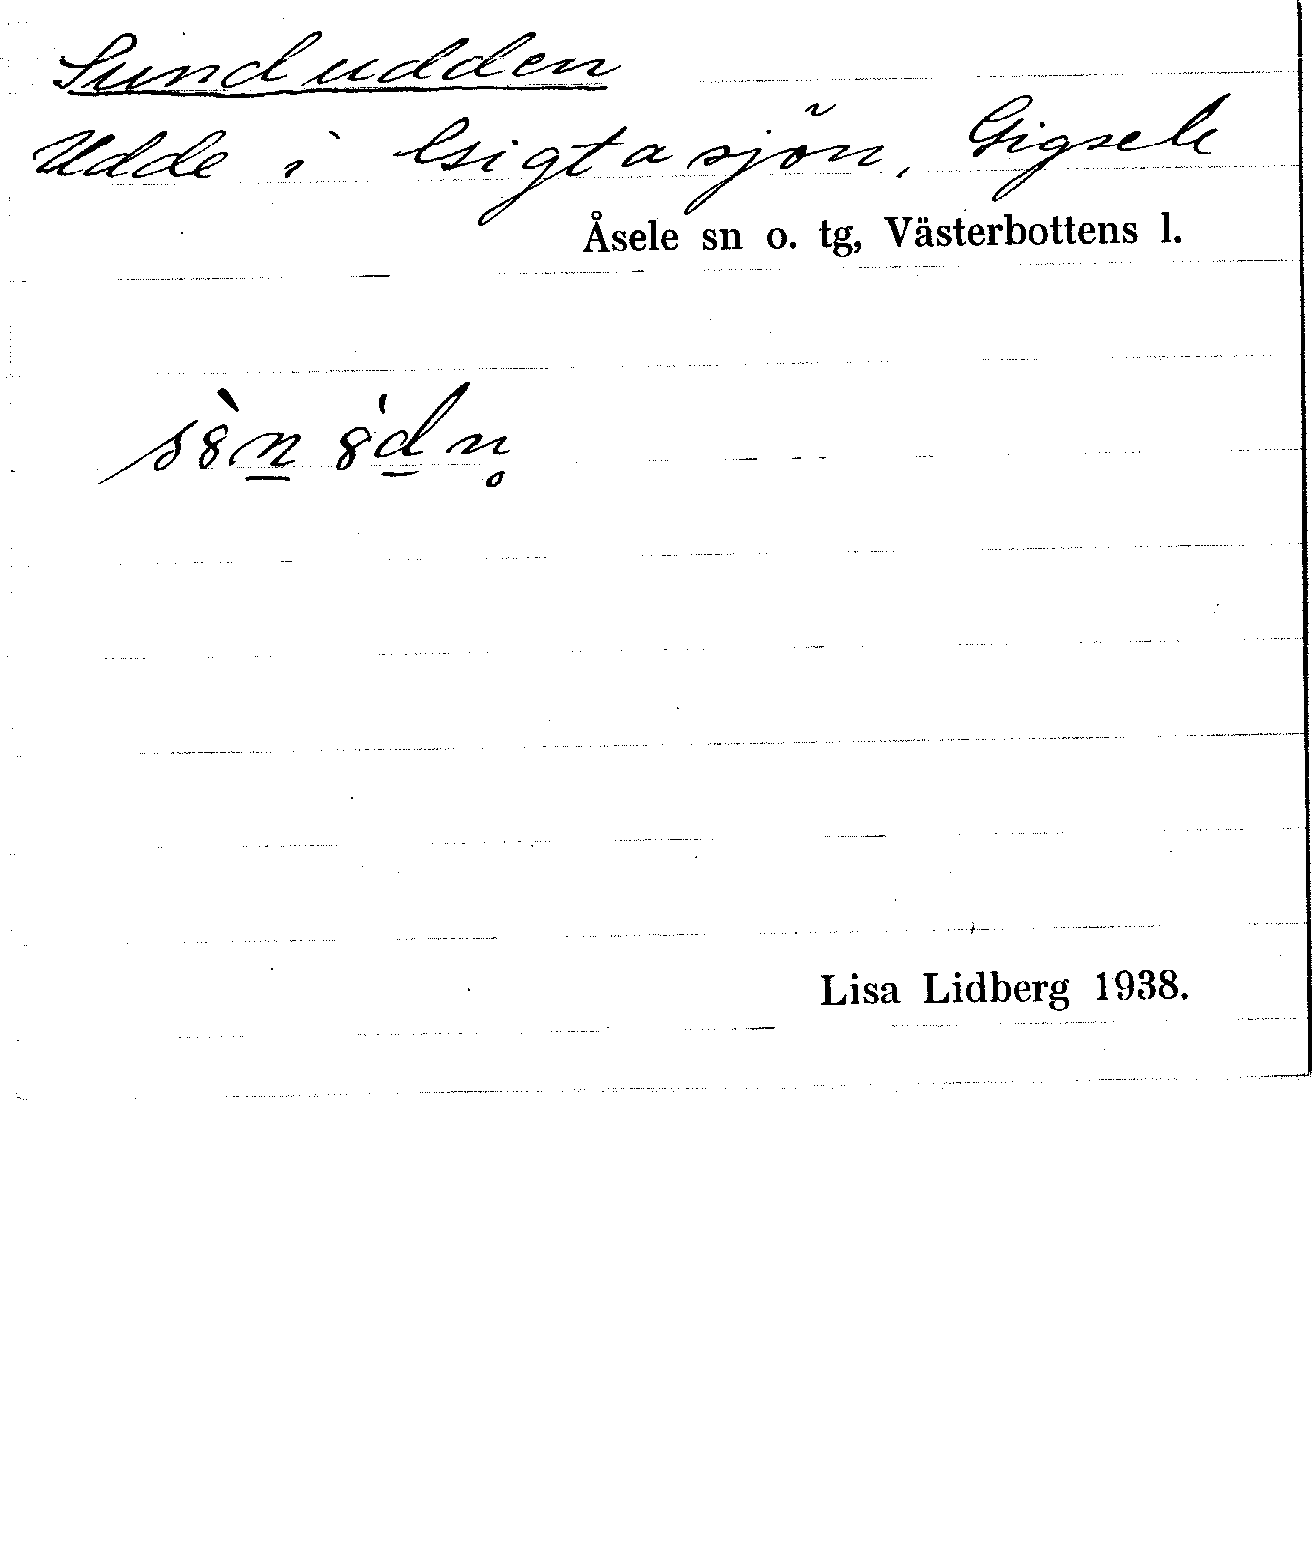 Sundudden
Udde i Gigtasjön, Gigsele
Åsele sn o. tg, Västerbottens l.
Lisa Lidberg 1938.